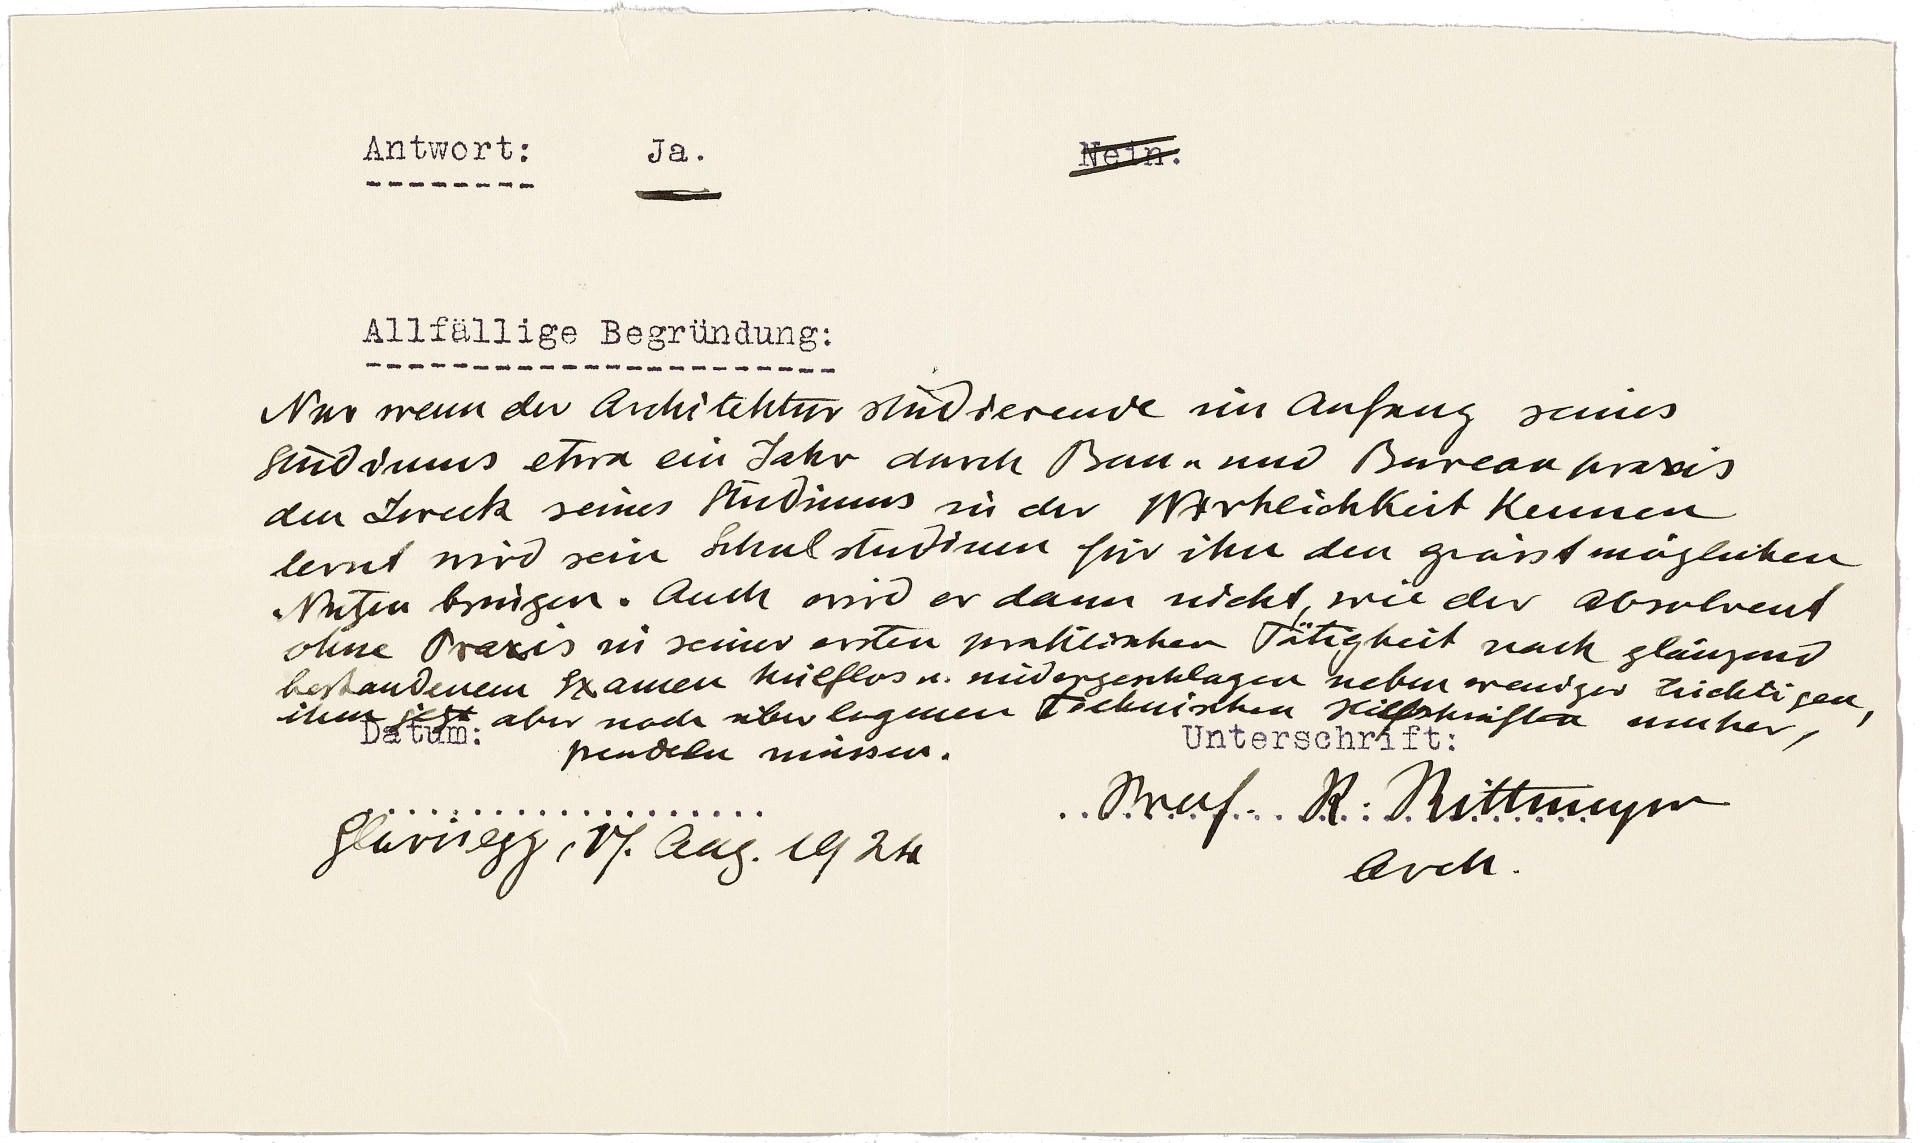 Antwort: Ja. Nein.
Allfällige Begründung:
Nur wenn der Architektur studierende im Anfang seines
Studiums etwa ein Jahr durch Bau- und Bureau praxis
den Zweck seines Studiums in der Wirklichkeit kennen
lernt wird sein Schulstudium für ihn den grösst möglichen
Nutzen bringen. Auch wird er dann nicht, wie der Absolvent
ohne Praxis in seiner ersten praktischen Tätigkeit nach glänzend
bestandenem Examen hülflos u. niedergeschlagen neben weniger tüchtigen,
ihm jetzt aber noch überlegenen Technischen Hilfskräften umher,
Datum: Unterschrift:
pendeln müssen.
Prof. R. Rittmeyer
17. Aug. 1924
Arch.